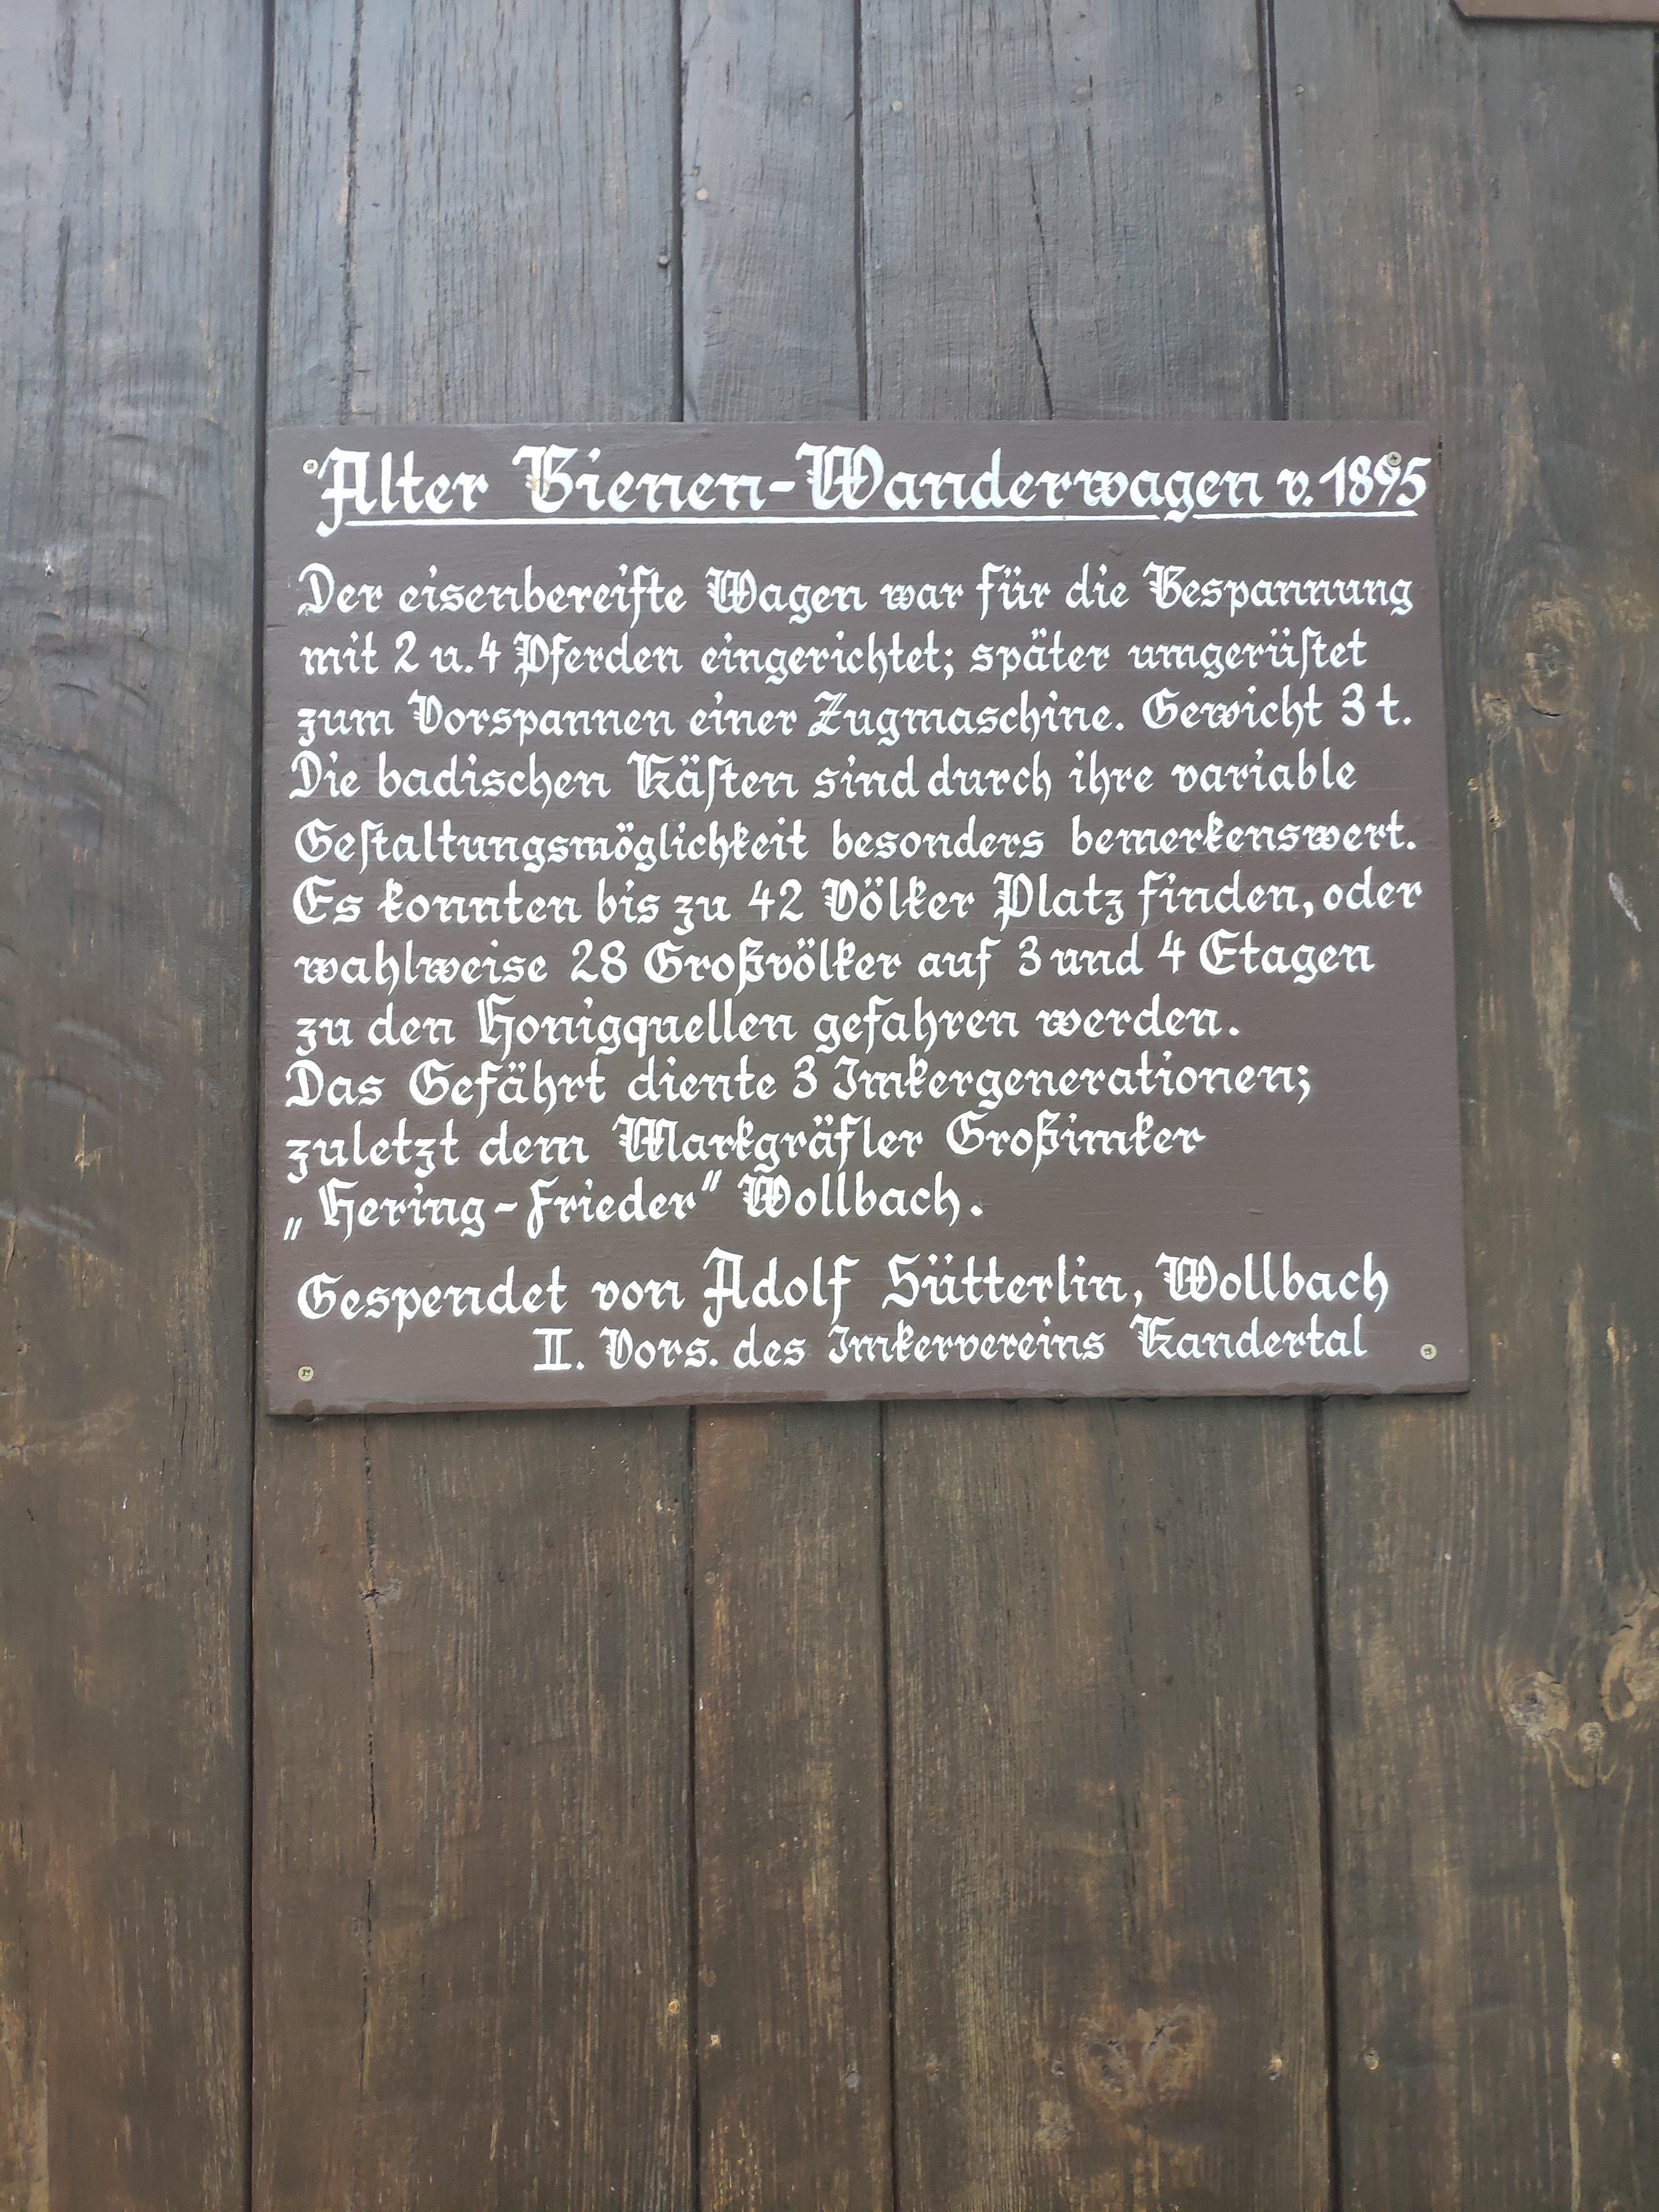 Alter Bienen-Wanderwagen v. 1895
Der eisenbereifte Wagen war für die Bespannung
mit 2 u. 4 Pferden eingerichtet; später umgerüſtet
zum Vorspannen einer Zugmaschine. Gewicht 3 t.
Die badischen Käſten sind durch ihre variable
Geſtaltungsmöglichkeit besonders bemerkenswert.
Es konnten bis zu 42 Völker Platz finden, oder
wahlweise 28 Großvölker auf 3 und 4 Etagen
zu den Honigquellen gefahren werden.
Das Gefährt diente 3 Imkergenerationen;
zuletzt dem Markgräfler Großimker
„Hering-Frieder" Wollbach.
Gespendet von Adolf Sütterlin, Wollbach
II. Vors. des Imkervereins Kandertal